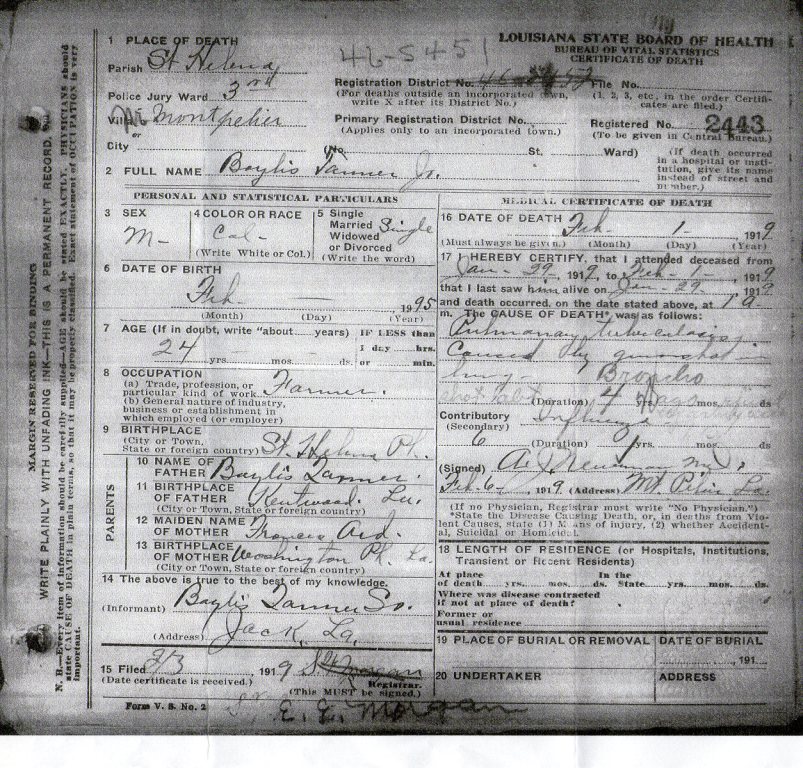 LOUISIANA STATE BOARD OF HEALTH
BUREAU OF VITAL STATISTICS
CERTIFICATE OF DEATH
46-5451
1 PLACE OF DEATH
Parish St Helena
Police Jury Ward 3rd
Village Montpelier
or
City (No. St. Ward)
Registration District No. File No.
(For deaths outside an incorporated town, write X after its District No.)
(1, 2, 3, etc., in the order Certificates are filed.)
Primary Registration District No. Registered No. 2443
(Applies only to an incorporated town.) (To be given in Central Bureau.)
(If death occurred in a hospital or institution, give its name instead of street and number.)
2 FULL NAME Baylis Tanner Jr.
PERSONAL AND STATISTICAL PARTICULARS
3 SEX M-
4 COLOR OR RACE Col-
(Write White or Col.)
5 Single Married Widowed or Divorced Single
(Write the word)
6 DATE OF BIRTH
Feb. — 1 95
(Month) (Day) (Year)
7 AGE (If in doubt, write "about.....years)
24 yrs. mos. ds.
IF LESS than 1 day hrs. or min.
8 OCCUPATION
(a) Trade, profession, or particular kind of work Farmer.
(b) General nature of industry, business or establishment in which employed (or employer)
9 BIRTHPLACE
(City or Town, State or foreign country) St. Helena Ph.
PARENTS
10 NAME OF FATHER Baylis Tanner
11 BIRTHPLACE OF FATHER Kentwood La.
(City or Town, State or foreign country)
12 MAIDEN NAME OF MOTHER
13 BIRTHPLACE OF MOTHER Washington Ph. La.
(City or Town, State or foreign country)
14 The above is true to the best of my knowledge.
(Informant) Baylis Tanner Sr.
(Address) Jack, La.
15 Filed 2/3 1919
(Date certificate is received.)
Registrar.
(This MUST be signed.)
Form V. S. No. 2
E. E. Morgan
MEDICAL CERTIFICATE OF DEATH
16 DATE OF DEATH Feb- 1- 1919
(Must always be given.) (Month) (Day) (Year)
17 I HEREBY CERTIFY, that I attended deceased from
Jan- 29 1919, to Feb- 1- 1919
that I last saw him alive on Jan- 29 1919
and death occurred, on the date stated above, at
m. The CAUSE OF DEATH* was as follows:
Pulmonary tuberculosis,
caused by gunshot in
lung Broncho
(Duration) 4 yrs. ago mos. ds
Contributory Influenza
(Secondary)
6 (Duration) yrs. mos. ds
(Signed)
Feb-6- 1919 (Address)
(If no Physician, Registrar must write "No Physician.")
*State the Disease Causing Death, or, in deaths from Violent Causes, state (1) Means of injury, (2) whether Accidental, Suicidal or Homicidal.
18 LENGTH OF RESIDENCE (or Hospitals, Institutions, Transient or Recent Residents)
At place of death yrs. mos. ds. In the State yrs. mos. ds.
Where was disease contracted
if not at place of death?
Former or
usual residence
19 PLACE OF BURIAL OR REMOVAL DATE OF BURIAL
191
20 UNDERTAKER ADDRESS
MARGIN RESERVED FOR BINDING
WRITE PLAINLY WITH UNFADING INK—THIS IS A PERMANENT RECORD.
N. B.—Every item of information should be carefully supplied—AGE should be stated EXACTLY. PHYSICIANS should
state CAUSE OF DEATH in plain terms, so that it may be properly classified. Exact statement of OCCUPATION is very
important.